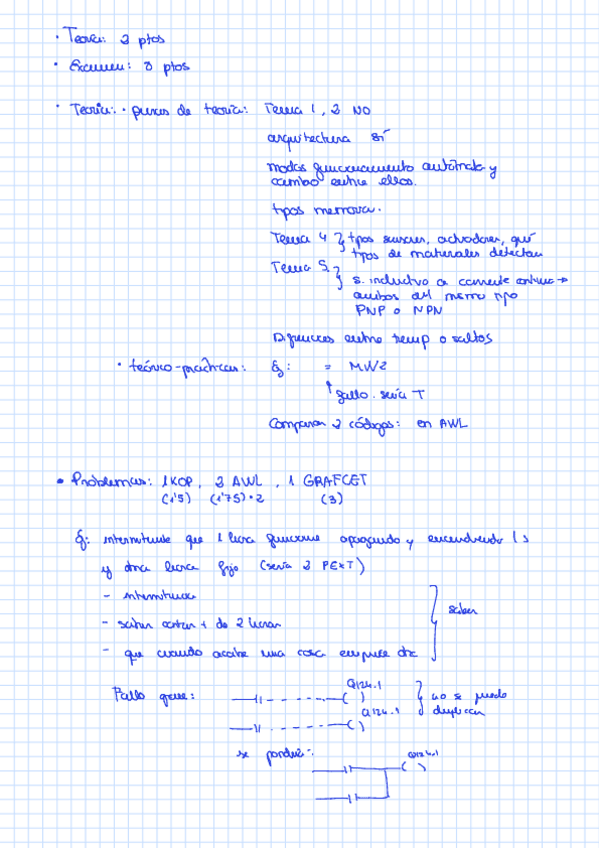 · Teoría: 2 ptos
· Examen: 8 ptos
· Teoría: · puras de teoría: Tema 1, 2 NO
arquitectura SÍ
modos funcionamiento autómata y
cambio entre ellos.
tipos memoria.
Tema 4 } tipos sensores, actuadores, qué
tipos de materiales detectan
Tema 5 } s. inductivo a corriente continua →
ambos del mismo tipo
PNP o NPN
Diferencias entre temp o saltos
· teórico-prácticas: Ej: = MW2
fallo. sería T
Comparar 2 códigos: en AWL
· Problemas: 1 KOP, 2 AWL, 1 GRAFCET
(1'5) (1'75)·2 (3)
Ej: intermitente que 1 hora funcione apagando y encendiendo 1 s
y otra hora fijo (sería 2 PEXT)
- intermitencia
- saber contar + de 2 horas
- que cuando acabe una cosa empiece otra
} saber
Fallo grave: Q124.1
Q124.1
} no se puede
duplicar
se pondría: Q124.1